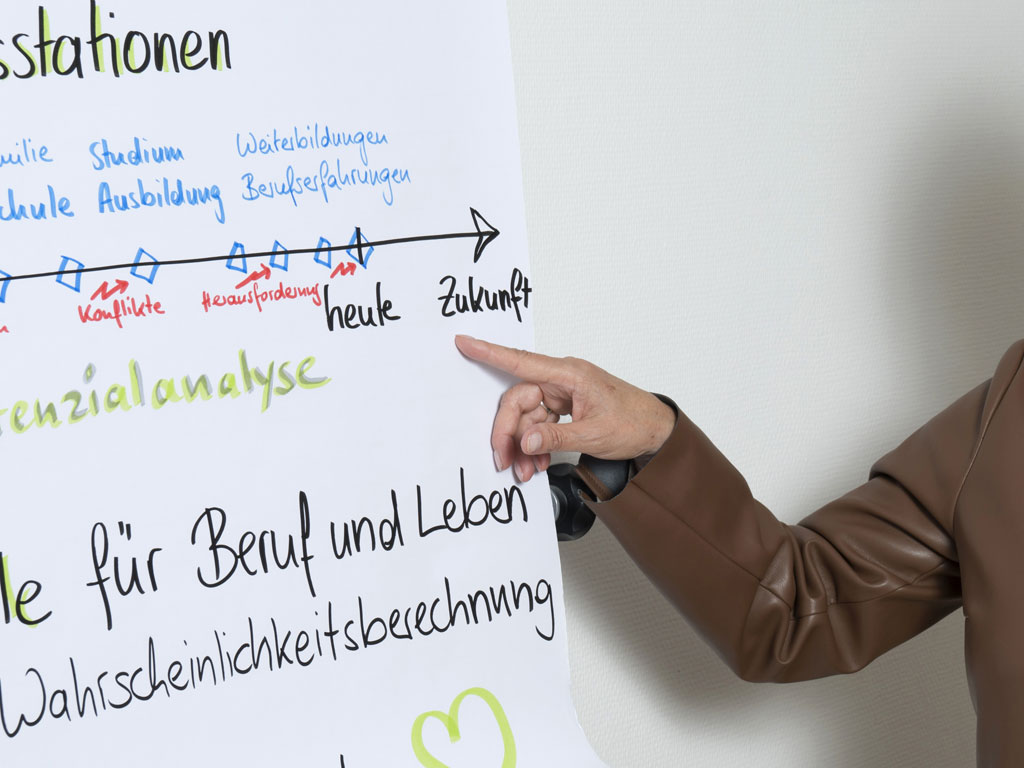 sstationen
milie Studium Weiterbildungen
chule Ausbildung Berufserfahrungen
Konflikte Herausforderung heute Zukunft
enzialanalyse
le für Beruf und Leben
Wahrscheinlichkeitsberechnung